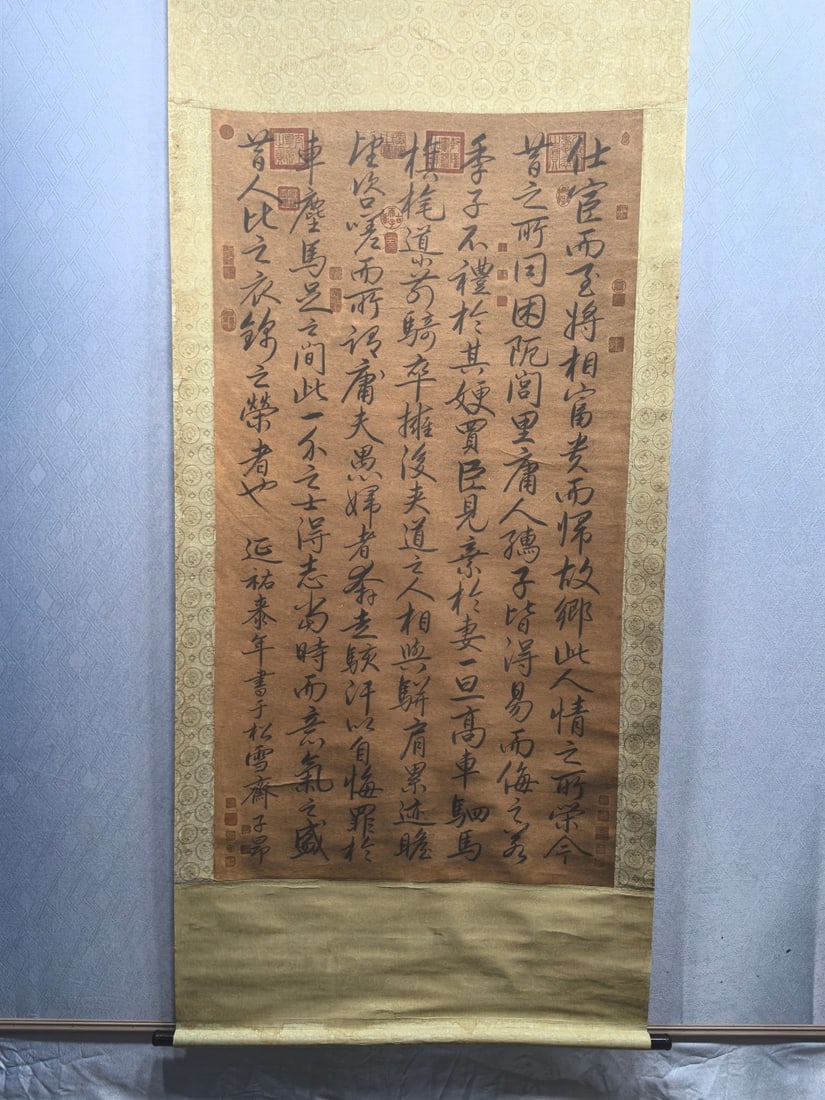 仕宦而至將相富貴而歸故鄉此人情之所榮今
昔之所同困阨閭里庸人孺子皆得易而侮之若
季子不禮於其嫂買臣見棄於妻一旦高車駟馬
旗旄導前騎卒擁後夾道之人相與駢肩累迹瞻
望咨嗟而所謂庸夫愚婦者奔走駭汗以自悔罪於
車塵馬足之間此一介之士得志當時而意氣之盛
昔人比之衣錦之榮者也 延祐泰年書于松雪齋子昂